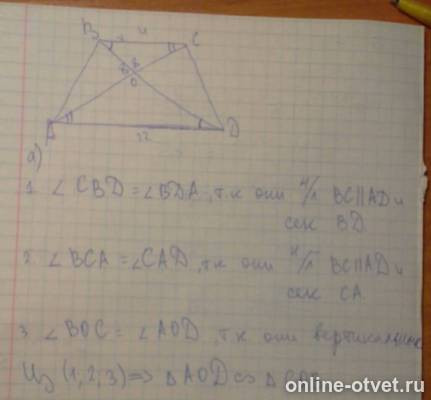 B 4 C
O
A 12 D
а)
1. ∠CBD = ∠BDA, т.к они н/л BC||AD и
сек BD
2 ∠BCA = ∠CAD, т.к они н/л BC||AD и
сек CA
3 ∠BOC = ∠AOD, т.к они вертикальные
Из (1,2,3) => △AOD ∾ △
online-otvet.ru